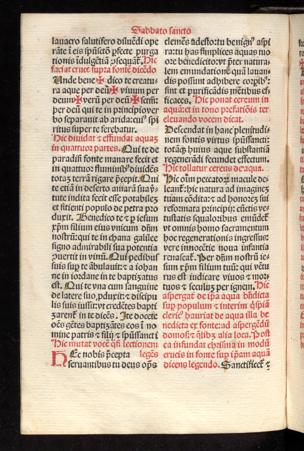 Sabbato sancto
lauacro salutifero diluēdi ope
rāte ī eis spūsctō pfecte purga
tionis īdulgētiā ɔsequāt̃. Hic
faciat crucē supra fontē dicēdo
Unde bene✠dico te creatu
ra aque per deū✠viuum per
deum✠verū per deū✠sanctū
per deū qui te in principio ver
bo separauit ab arida: cuiꝰ spi
ritus super te ferebatur.
Hic diuidat ⁊ effundat aquaʒ
in quattuor partes. Qui te de
paradisi fonte manare fecit et
in quattuor fluminibꝰ
totaʒ terrā rigare p̄cepit. Qui
te etiā in deserto amarā suaui
tate indita fecit esse potabileʒ
et sitienti populo de petra pro
duxit. Benedico te ⁊ p iesum
xp̄m filium eius vnicum dn̄m
nostrū: qui te in chana galilee
signo admirabili sua potentia
ɔuertit in vinū. Qui pedibus
suis sup te ābulauit: ⁊ a iohan
ne in iordane in te baptiʒatus
est. Qui te vna cum sanguine
de latere suo ,pduxit: ⁊ discipu
lis suis iussit: vt credētes bapti
ʒarent̃ in te dicēs. Ite docete
oēs gētes baptiʒātes eos ī no
mine patris ⁊ filij ⁊ spūssancti
Hic mutat vocē quasi lectionem
Hec nobis p̄cepta legēs
seruantibus tu deus oīps
clemēs adesto: tu benignꝰ aspi
ra: tu has simplices aquas tuo
ore bn̄dicito: vt p̄ter natura
lem emundationē quā lauan
dis possunt adhibere corpibꝰ:
sint et purificādis mētibus ef
ficaces. Hic ponat cereum in
aquā: et in tono prefatiōis ter
eleuando vocem dicat.
Descendat in hanc plenitudi
nem fontis virtus spūssancti:
totāqꝫ huius aque substantiā
regenerādi fecundet effectum.
Hic tollatur cereus de aqua.
Hic oīm peccatorū macule de
leant̃: hic natura ad imaginē
tuam cōdita: ⁊ ad honorē sui
reformata principij: cūctis ve
tustatis squaloribus emūdet̃
vt omnis homo sacramentum
hoc regenerationis ingressus:
vere innocētie noua infantia
renascat̃. Per dn̄m nostrū ie
sum xp̄m filium tuū: qui vētu
rus est iudicare viuos ⁊ mor
tuos ⁊ seculuʒ per ignem. Hic
aspergat de ipa aqua bn̄dicta
sup populum: ⁊ interim dispēsat
clericꝰ hauriat de aqua illa be
nedicta ex fonte: ad aspergēdū
domos ⁊ alia loca. Post
ea infundat chrisma in modū
crucis in fonte sup ipam aquā
dicens legendo. Sanctificet ⁊